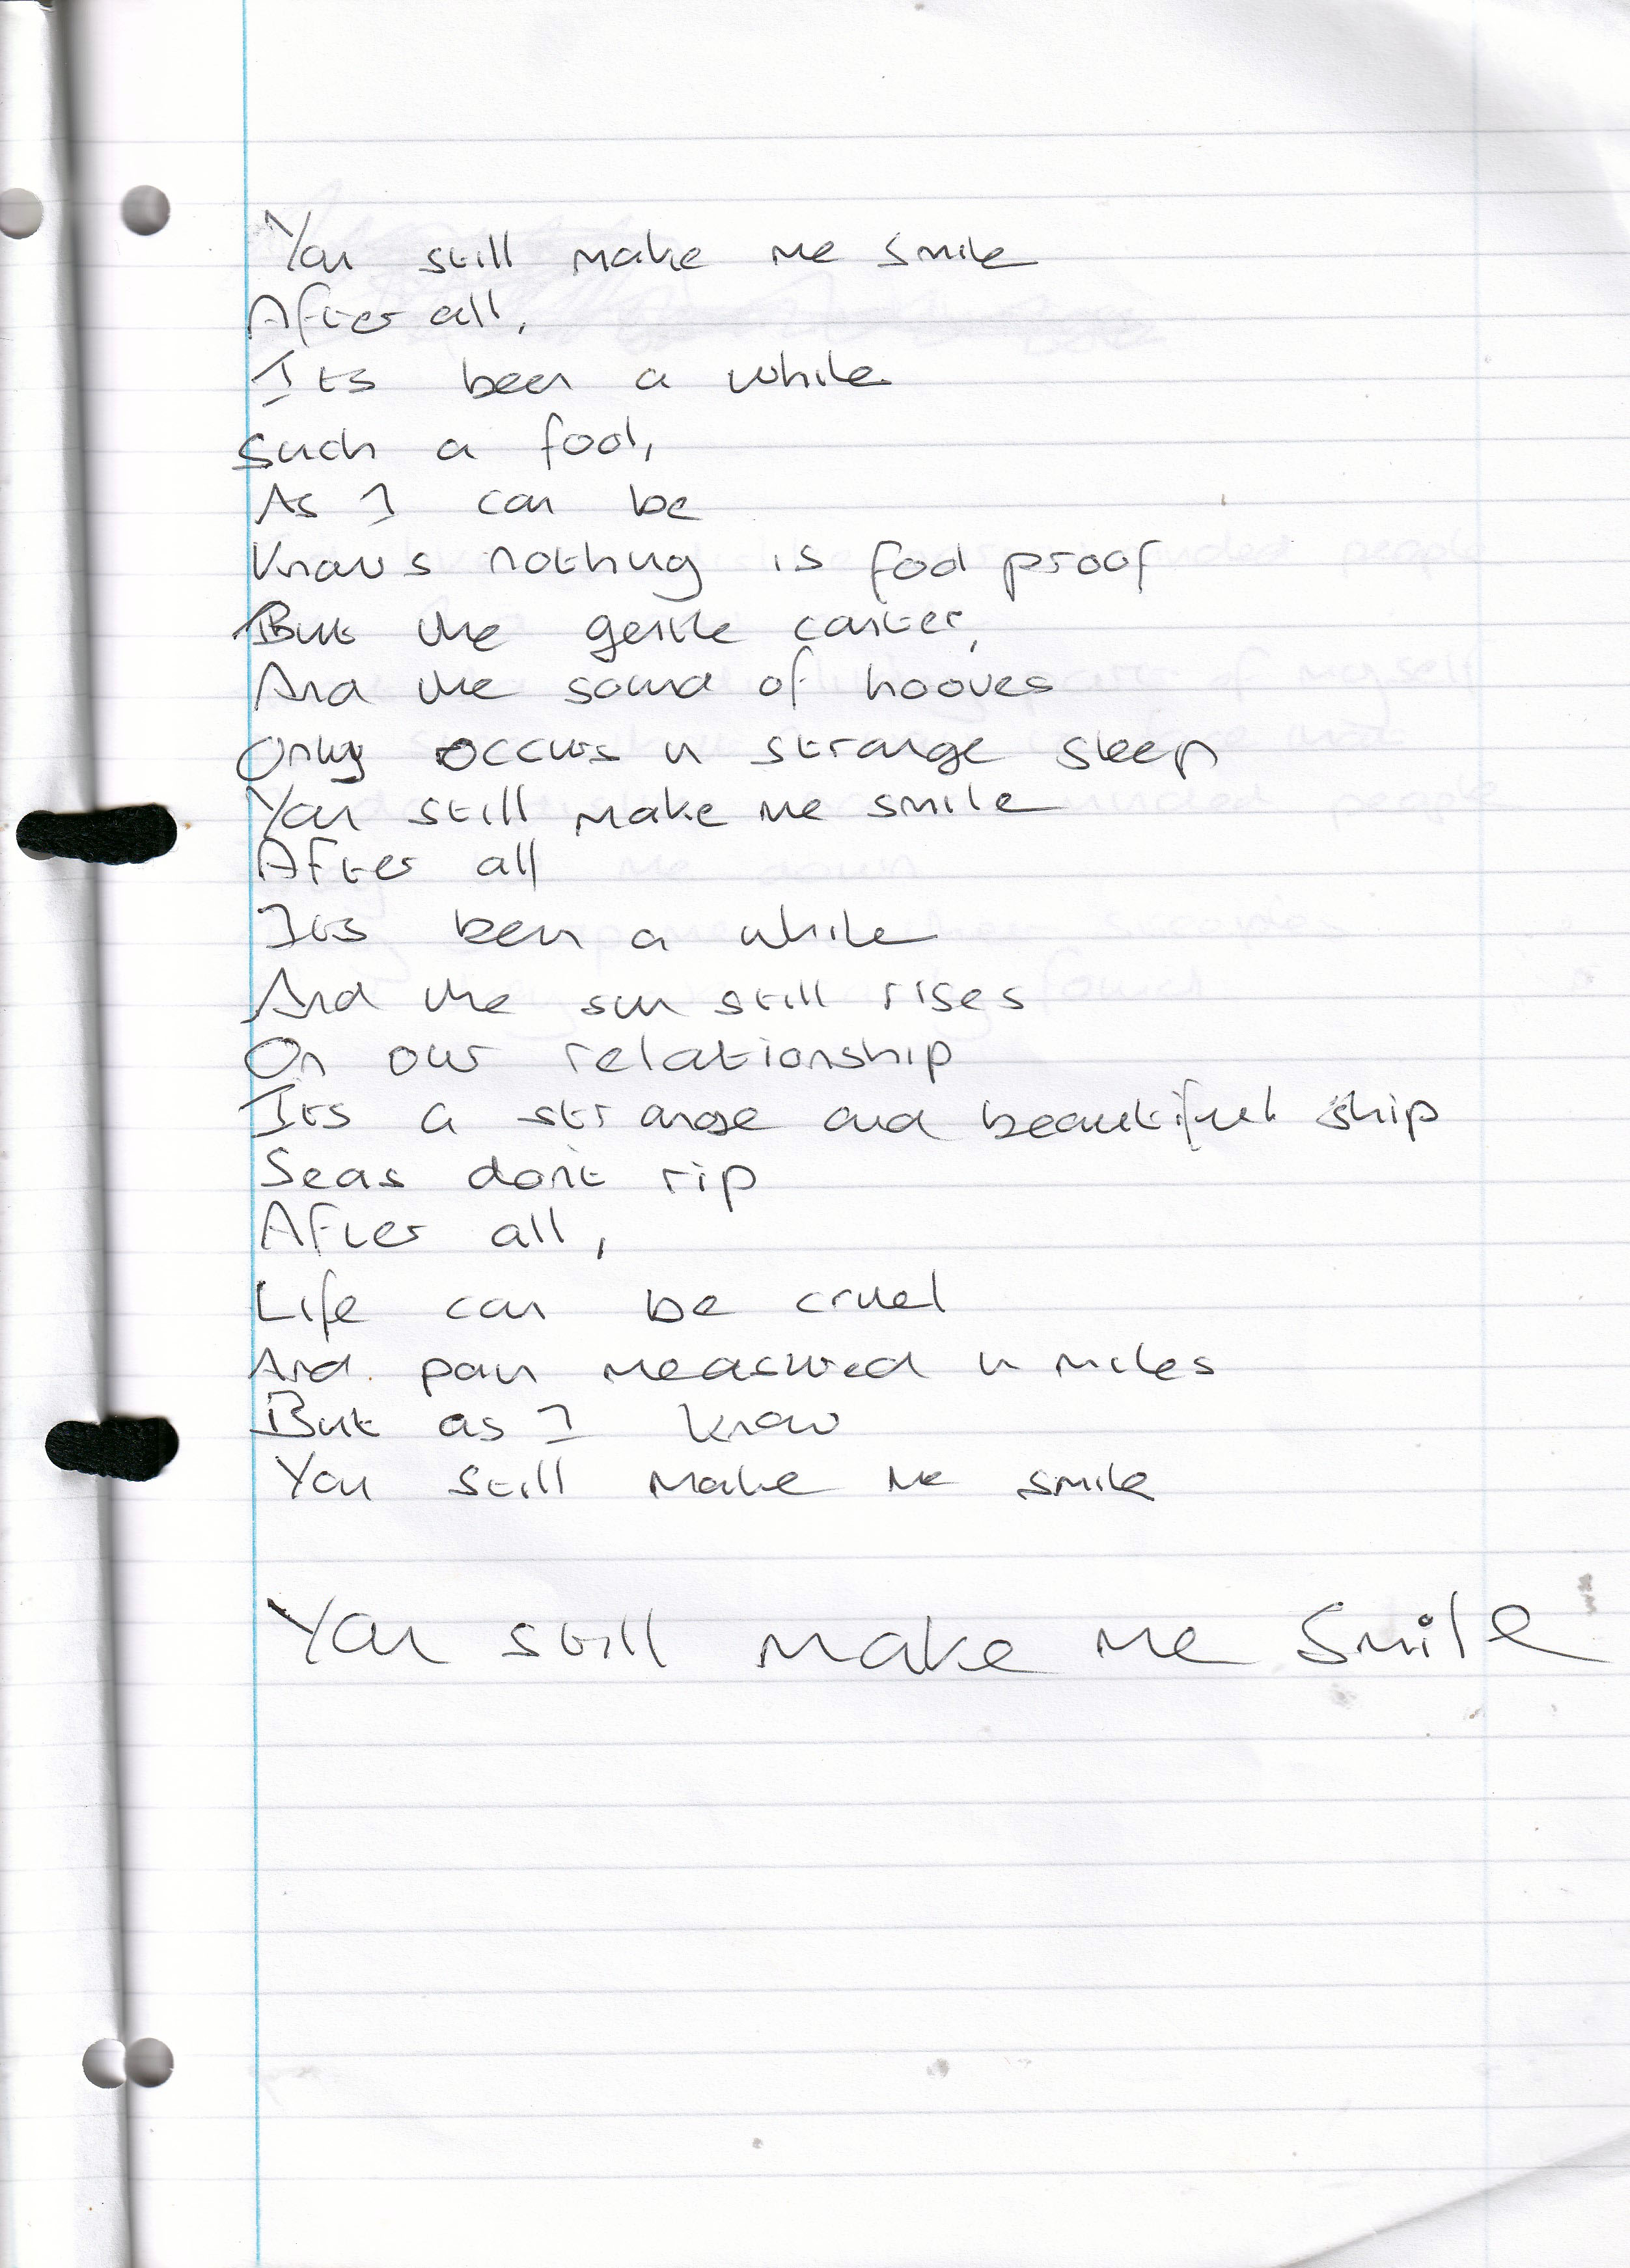 You still make me smile
After all,
Its been a while
Such a fool,
As I can be
Knows nothing is fool proof
But the gentle canter,
And the sound of hooves
Only occurs in strange sleep
You still make me smile
After all
Its been a while
And the sun still rises
On our relationship
Its a strange and beautiful ship
Seas don't rip
After all,
Life can be cruel
And pain measured in miles
But as I know
You still make me smile
You still make me smile